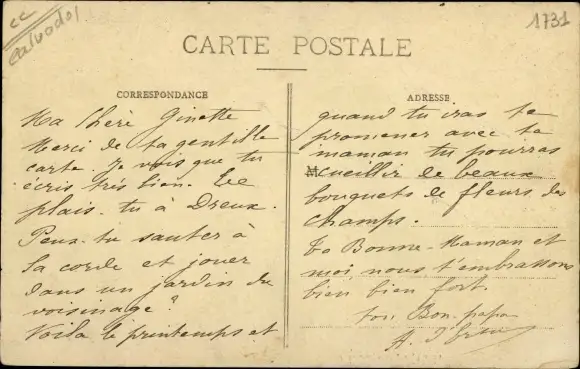 cc
Calvados
1731
CARTE POSTALE
CORRESPONDANCE
Ma Chère Ginette
Merci de ta gentille
carte. Je vois que tu
écris très bien. Te
plais-tu à Dreux.
Peux-tu sauter à
la corde et jouer
dans un jardin du
voisinage ?
Voilà le printemps et
ADRESSE
quand tu iras te
promener avec ta
maman tu pourras
M cueillir de beaux
bouquets de fleurs des
champs.
Ta Bonne-Maman et
moi, nous t'embrassons
bien bien fort.
ton Bon-papa
A.